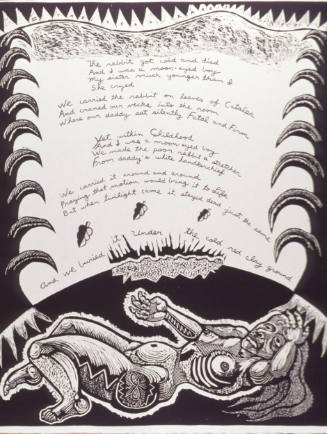 The rabbit got cold and died
And I was a moon-eyed boy
My sister much younger than I
She cried
We carried the rabbit on leaves of Catalpa
And craned our necks into the room
Where our daddy sat silently Fetal and Firm
Yet within Childhood
And I was a moon-eyed boy
We made the poor rabbit a stretcher
From daddy's white handkerchief
We carried it around and around
Praying that motion would bring it to Life
But when twilight came it stayed dead just the same
And we buried it Under the cold red clay ground